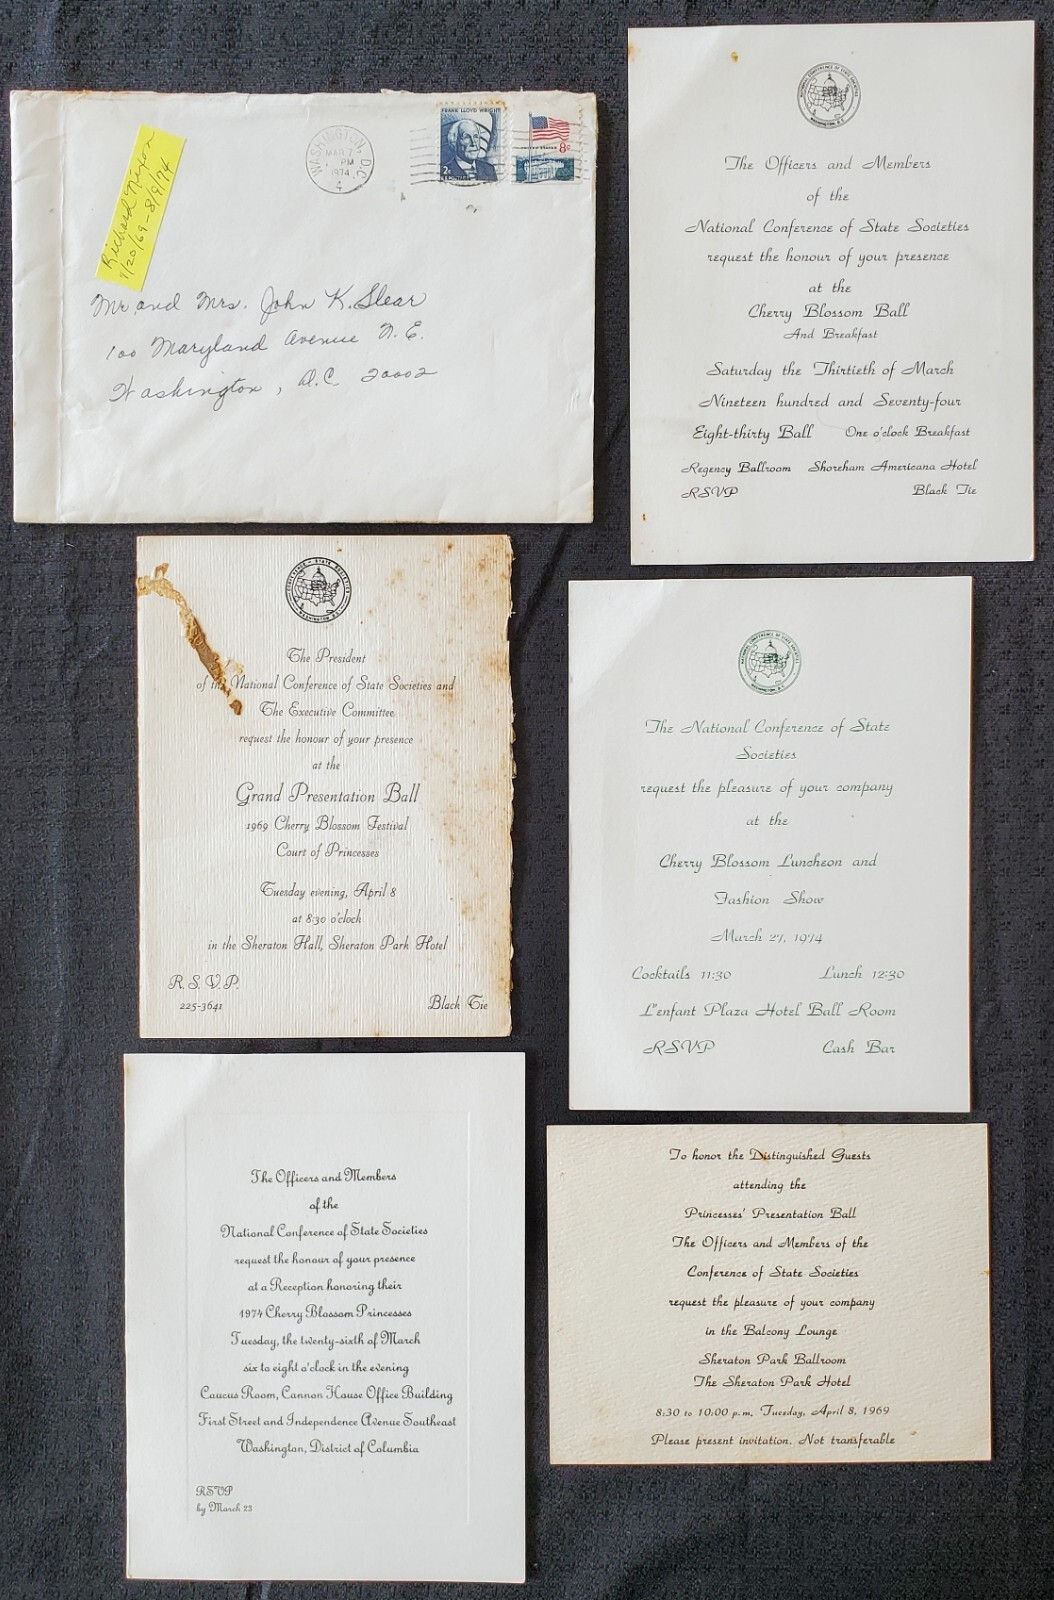 Richard Nixon
1/20/69-8/9/74
WASHINGTON, D.C.
MAR 7
PM
1974
FRANK LLOYD WRIGHT
2¢
8¢
Mr. and Mrs. John K. Slear
100 Maryland Avenue N.E.
Washington, D.C. 20002
NATIONAL CONFERENCE OF STATE SOCIETIES
WASHINGTON, D.C.
The Officers and Members
of the
National Conference of State Societies
request the honour of your presence
at the
Cherry Blossom Ball
And Breakfast
Saturday the Thirtieth of March
Nineteen hundred and Seventy-four
Eight-thirty Ball One o'clock Breakfast
Regency Ballroom Shoreham Americana Hotel
RSVP Black Tie
CONFERENCE - STATE SOCIETIES
WASHINGTON D.C.
The President
of the National Conference of State Societies and
The Executive Committee
request the honour of your presence
at the
Grand Presentation Ball
1969 Cherry Blossom Festival
Court of Princesses
Tuesday evening, April 8
at 8:30 o'clock
in the Sheraton Hall, Sheraton Park Hotel
R.S.V.P.
225-3641 Black Tie
NATIONAL CONFERENCE OF STATE SOCIETIES
WASHINGTON, D.C.
The National Conference of State
Societies
request the pleasure of your company
at the
Cherry Blossom Luncheon and
Fashion Show
March 27, 1974
Cocktails 11:30 Lunch 12:30
L'enfant Plaza Hotel Ball Room
RSVP Cash Bar
The Officers and Members
of the
National Conference of State Societies
request the honour of your presence
at a Reception honoring their
1974 Cherry Blossom Princesses
Tuesday, the twenty-sixth of March
six to eight o'clock in the evening
Caucus Room, Cannon House Office Building
First Street and Independence Avenue Southeast
Washington, District of Columbia
RSVP
by March 23
To honor the Distinguished Guests
attending the
Princesses' Presentation Ball
The Officers and Members of the
Conference of State Societies
request the pleasure of your company
in the Balcony Lounge
Sheraton Park Ballroom
The Sheraton Park Hotel
8:30 to 10:00 p.m. Tuesday, April 8, 1969
Please present invitation. Not transferable